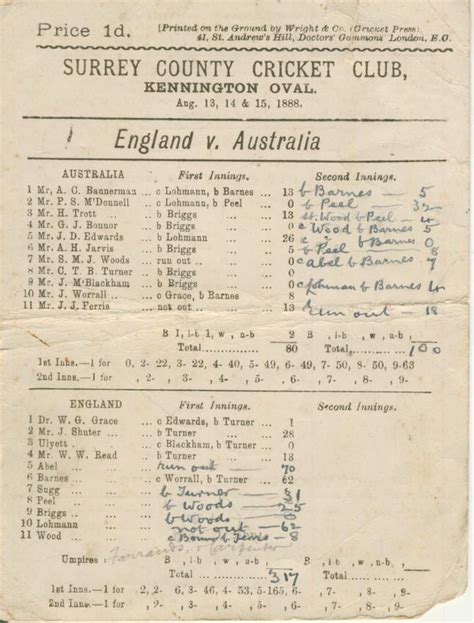 Price 1d. (Printed on the Ground by Wright & Co. (Cricket Press)
41, St. Andrew's Hill, Doctors' Commons London, E.C.
SURREY COUNTY CRICKET CLUB,
KENNINGTON OVAL.
Aug. 13, 14 & 15, 1888.
England v. Australia
AUSTRALIA First Innings. Second Innings.
1 Mr, A. C. Bannerman ... c Lohmann, b Barnes ... 13 b Barnes — 5
2 Mr. P. S. M'Donnell ... c Lohmann, b Peel ... 0 b Peel — 32
3 Mr. H. Trott ... b Briggs ... 13 st. Wood b Peel — 4
4 Mr. G. J. Bonnor ... b Briggs ... 5 c Wood b Barnes 5
5 Mr. J. D. Edwards ... b Lohmann ... 26 b Barnes 0
6 Mr. A. H. Jarvis ... b Briggs ... 5 b Peel 8
7 Mr. S. M. J. Woods ... run out ... 0 c Abel b Barnes 7
8 Mr. C. T. B. Turner ... b Briggs ... 0
9 Mr. J. M'Blackham ... b Briggs ... 0 b Barnes
10 Mr. J. Worrall ... c Grace, b Barnes ... 8
11 Mr. J. J. Ferris ... not out ... 13 run out — 18
B 1, l-b 1, w, n-b 2 B , l-b , w , n-b
Total ... 80 Total ... 100
1st Inns.—1 for 0, 2- 22, 3- 22, 4- 40, 5- 49, 6- 49, 7- 50, 8- 50, 9-63
2nd Inns.—1 for ,2- ,3- ,4- ,5- ,6- ,7- ,8- ,9-
ENGLAND First Innings. Second Innings.
1 Dr. W. G. Grace ... c Edwards, b Turner ... 1
2 Mr. J. Shuter ... b Turner ... 28
3 Ulyett ... c Blackham, b Turner ... 0
4 Mr. W. W. Read ... b Turner
5 Abel ... run out — 70
6 Barnes ... c Worrall, b Turner — 62
7 Sugg ... b Turner — 31
8 Peel ... b Woods — 25
9 Briggs ... b Woods — 0
10 Lohmann ... not out — 62
11 Wood ... c b Ferris — 8
Umpires B , l-b , w , n-b B , l-b , w , n-b
Total ... 317 Total ...
1st Inns.—1 for 2, 2- 6, 3- 46, 4- 53, 5-165, 6- ,7- ,8- ,9-
2nd Inns.—1 for ,2- ,3- ,4- ,5- ,6- ,7- ,8- ,9-